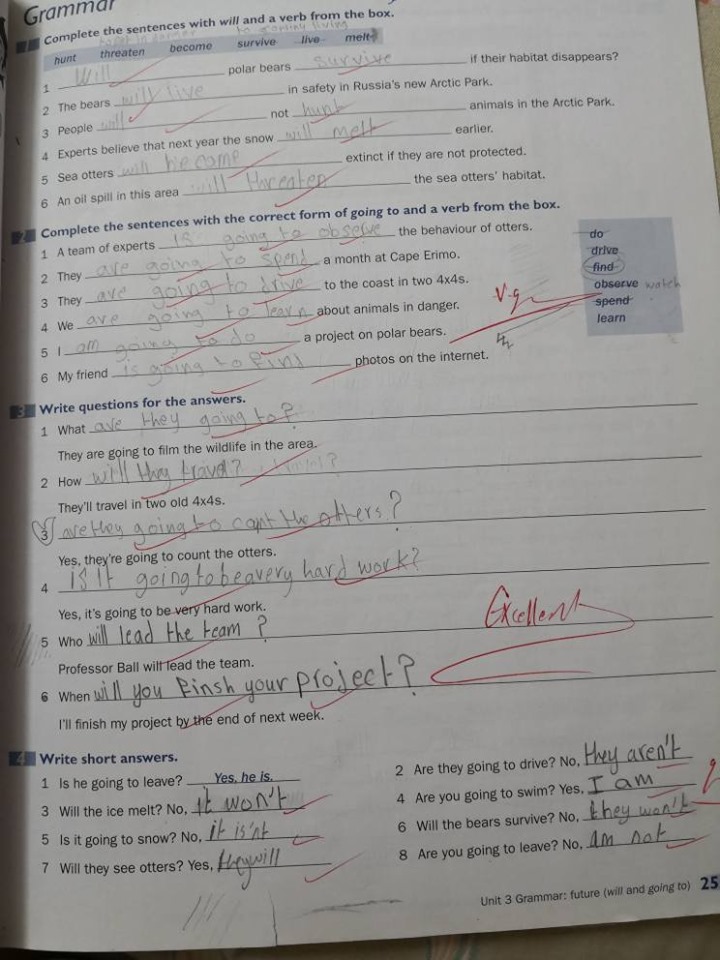 Grammar
1 Complete the sentences with will and a verb from the box.
hunt threaten become survive live melt
1 Will polar bears survive if their habitat disappears?
2 The bears will live in safety in Russia's new Arctic Park.
3 People will not hunt animals in the Arctic Park.
4 Experts believe that next year the snow will melt earlier.
5 Sea otters will become extinct if they are not protected.
6 An oil spill in this area will threaten the sea otters' habitat.
2 Complete the sentences with the correct form of going to and a verb from the box.
1 A team of experts is going to observe the behaviour of otters.
2 They are going to spend a month at Cape Erimo.
3 They are going to drive to the coast in two 4x4s.
4 We are going to learn about animals in danger.
5 I am going to do a project on polar bears.
6 My friend is going to find photos on the internet.
do
drive
find
observe watch
spend
learn
V.g
3 Write questions for the answers.
1 What are they going to?
They are going to film the wildlife in the area.
2 How will they travel?
They'll travel in two old 4x4s.
3 are they going to cont the otters?
Yes, they're going to count the otters.
4 is it going to be a very hard work?
Yes, it's going to be very hard work.
5 Who will lead the team?
Excellent
Professor Ball will lead the team.
6 When will you finsh your project?
I'll finish my project by the end of next week.
4 Write short answers.
1 Is he going to leave? Yes, he is.
2 Are they going to drive? No, they aren't
3 Will the ice melt? No, it won't
4 Are you going to swim? Yes, I am
5 Is it going to snow? No, it is'nt
6 Will the bears survive? No, they won't
7 Will they see otters? Yes, they will
8 Are you going to leave? No, am not
Unit 3 Grammar: future (will and going to) 25